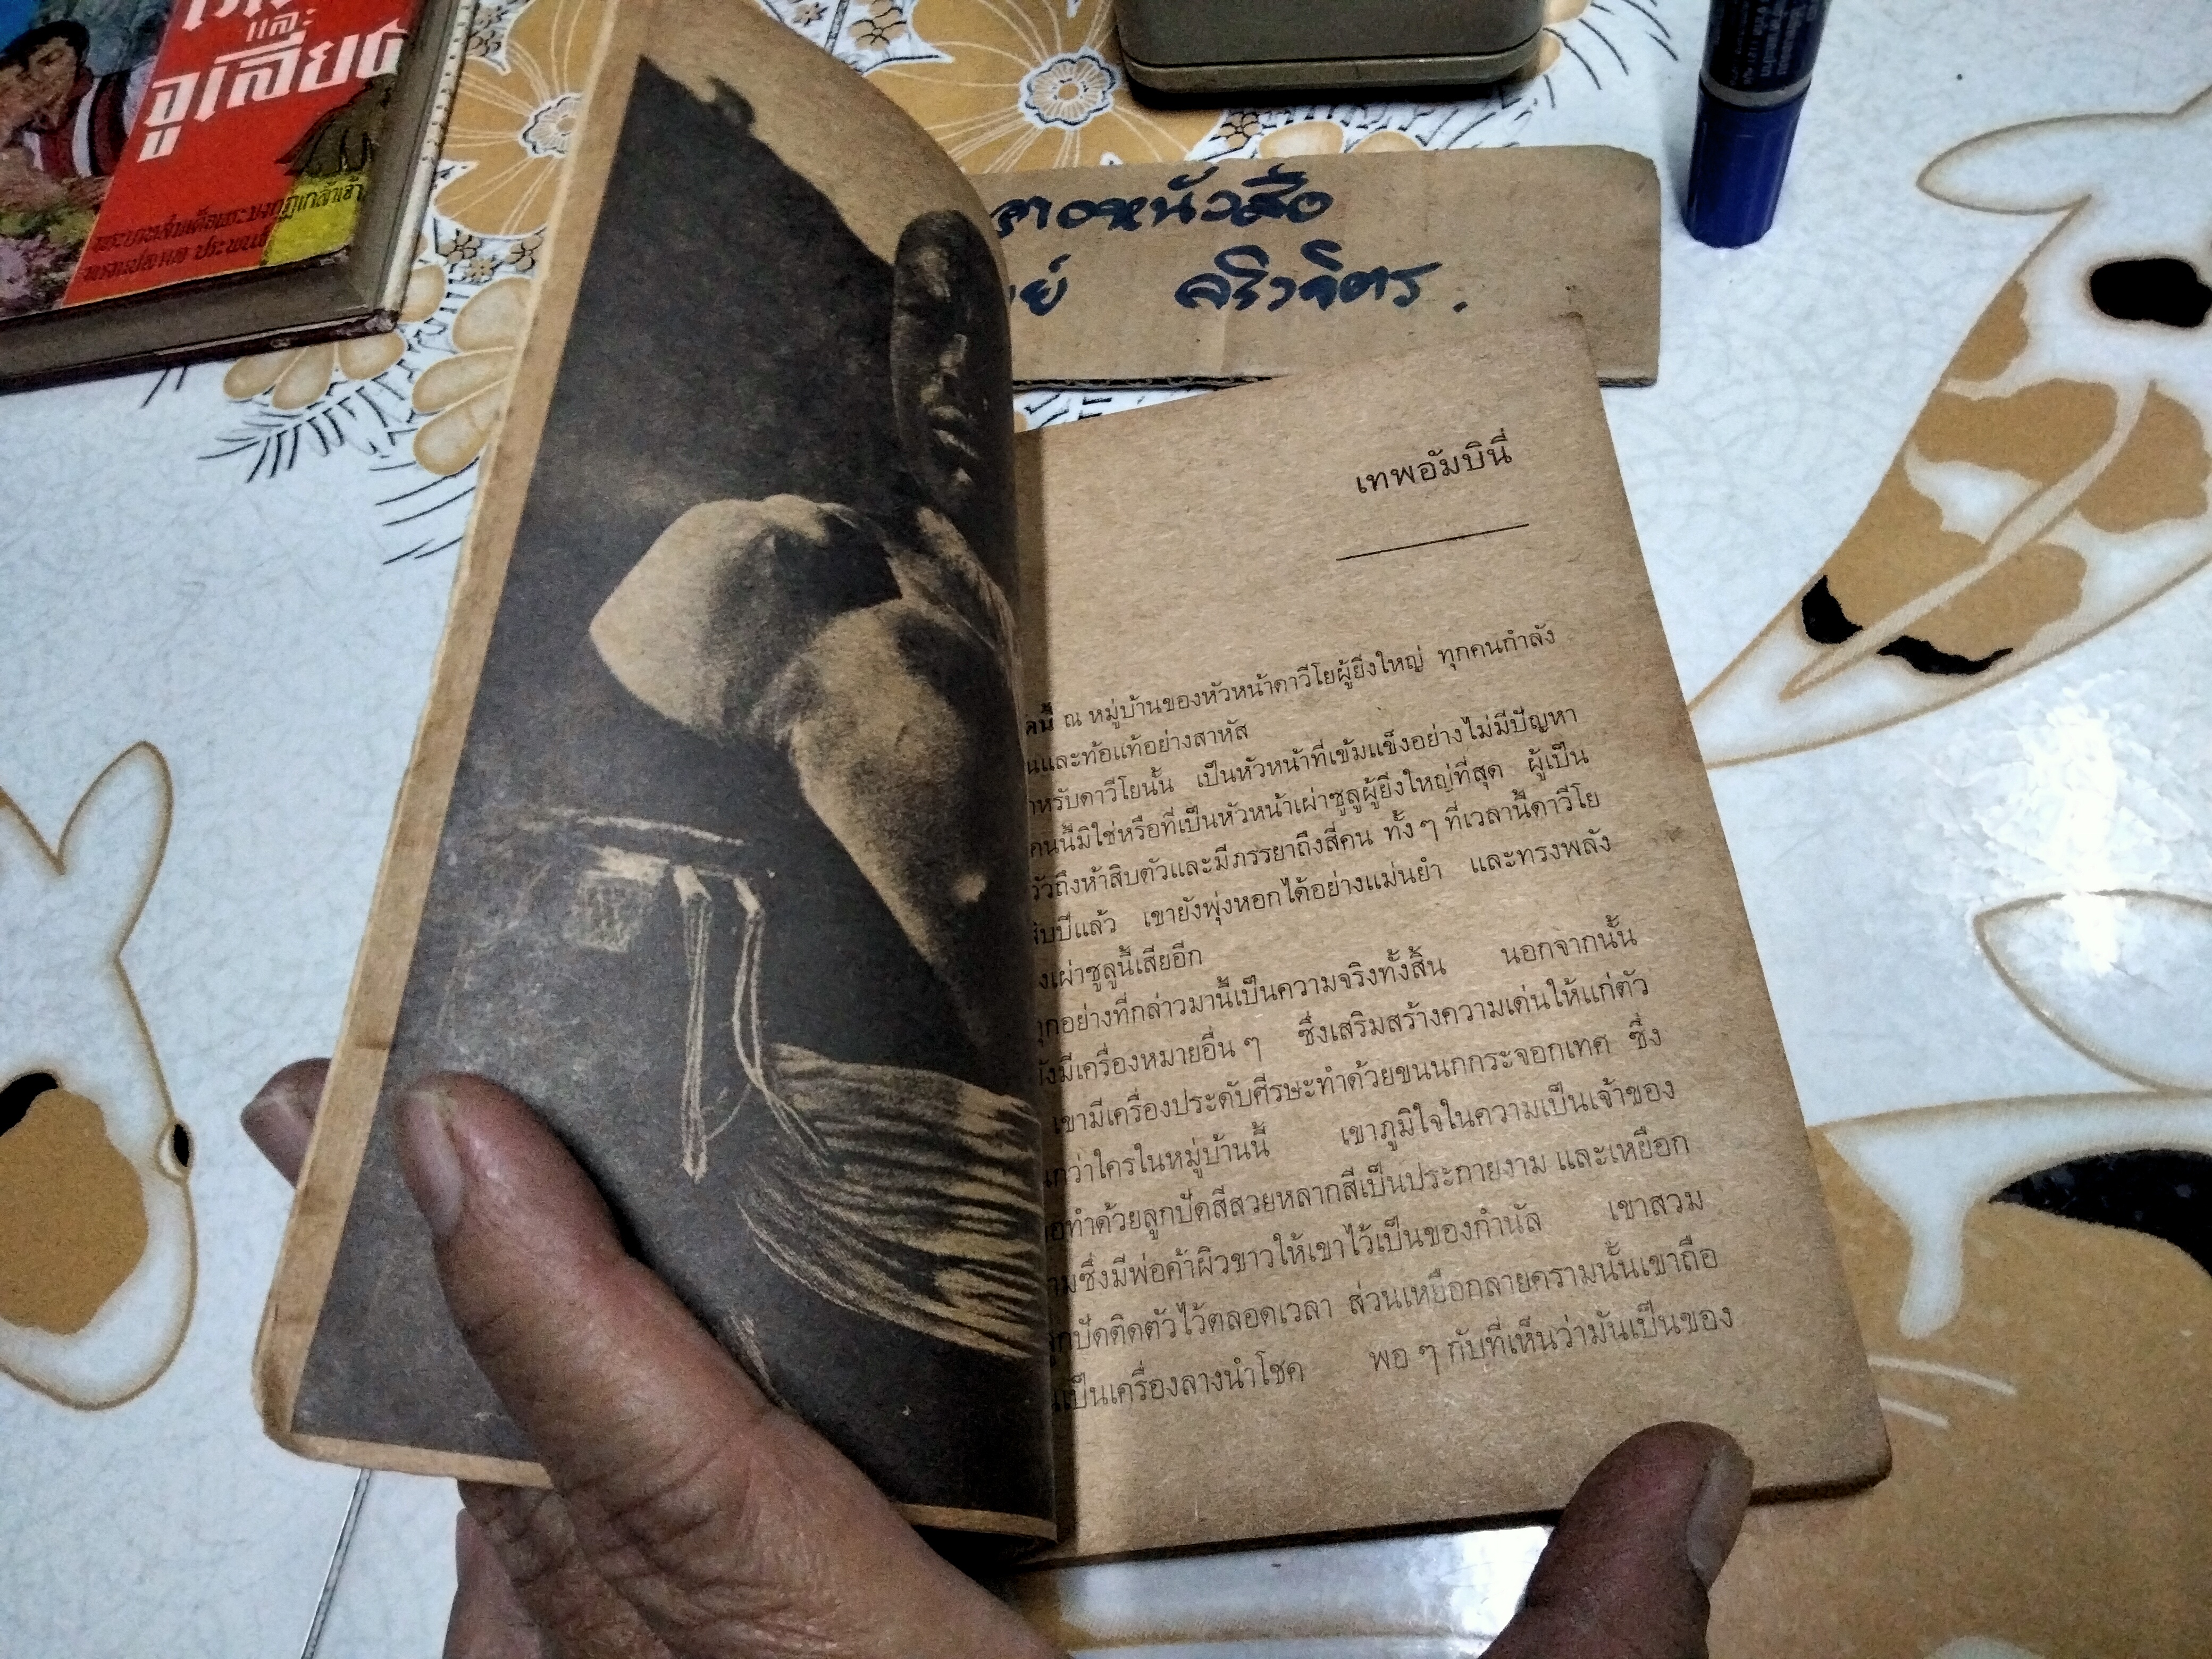 และ
จูเลียช
พระบาทสมเด็จพระมงกุฎเกล้าเจ้า
หนังสือ
เทพอัมบินี่
ณ หมู่บ้านของหัวหน้าดาวีโยผู้ยิ่งใหญ่ ทุกคนกำลัง
และท้อแท้อย่างสาหัส
ดาวีโยนั้น เป็นหัวหน้าที่เข้มแข็งอย่างไม่มีปัญหา
คนนี้มิใช่หรือที่เป็นหัวหน้าเผ่าซูลูผู้ยิ่งใหญ่ที่สุด ผู้เป็น
วัวถึงห้าสิบตัวและมีภรรยาถึงสี่คน ทั้ง ๆ ที่เวลานี้ดาวีโย
สิบปีแล้ว เขายังพุ่งหอกได้อย่างแม่นยำ และทรงพลัง
เผ่าซูลูนี้เสียอีก
ทุกอย่างที่กล่าวมานี้เป็นความจริงทั้งสิ้น นอกจากนั้น
ยังมีเครื่องหมายอื่น ๆ ซึ่งเสริมสร้างความเด่นให้แก่ตัว
เขามีเครื่องประดับศีรษะทำด้วยขนนกกระจอกเทศ ซึ่ง
กว่าใครในหมู่บ้านนี้ เขาภูมิใจในความเป็นเจ้าของ
ทำด้วยลูกปัดสีสวยหลากสีเป็นประกายงาม และเหยือก
ซึ่งมีพ่อค้าผิวขาวให้เขาไว้เป็นของกำนัล เขาสวม
ลูกปัดติดตัวไว้ตลอดเวลา ส่วนเหยือกลายครามนั้นเขาถือ
เป็นเครื่องลางนำโชค พอ ๆ กับที่เห็นว่ามันเป็นของ